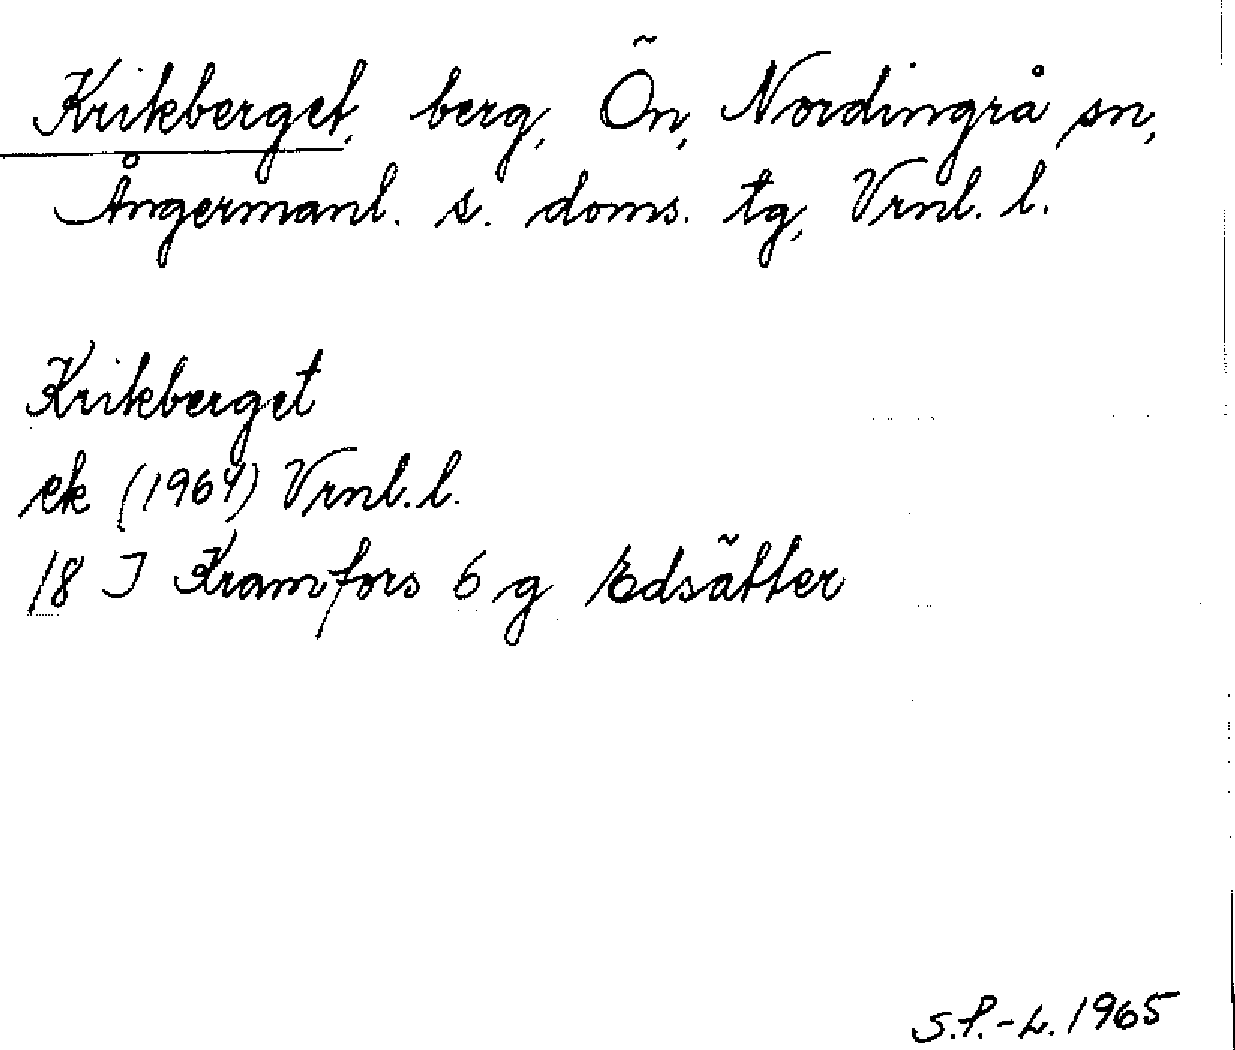 Krikberget, berg, Ön, Nordingrå sn,
Ångermanl. s. doms. tg, Vrnl. l.
Krikberget
ek (1964) Vrnl. l.
18 I Kramfors 6 g Edsätter
S.P.-L. 1965